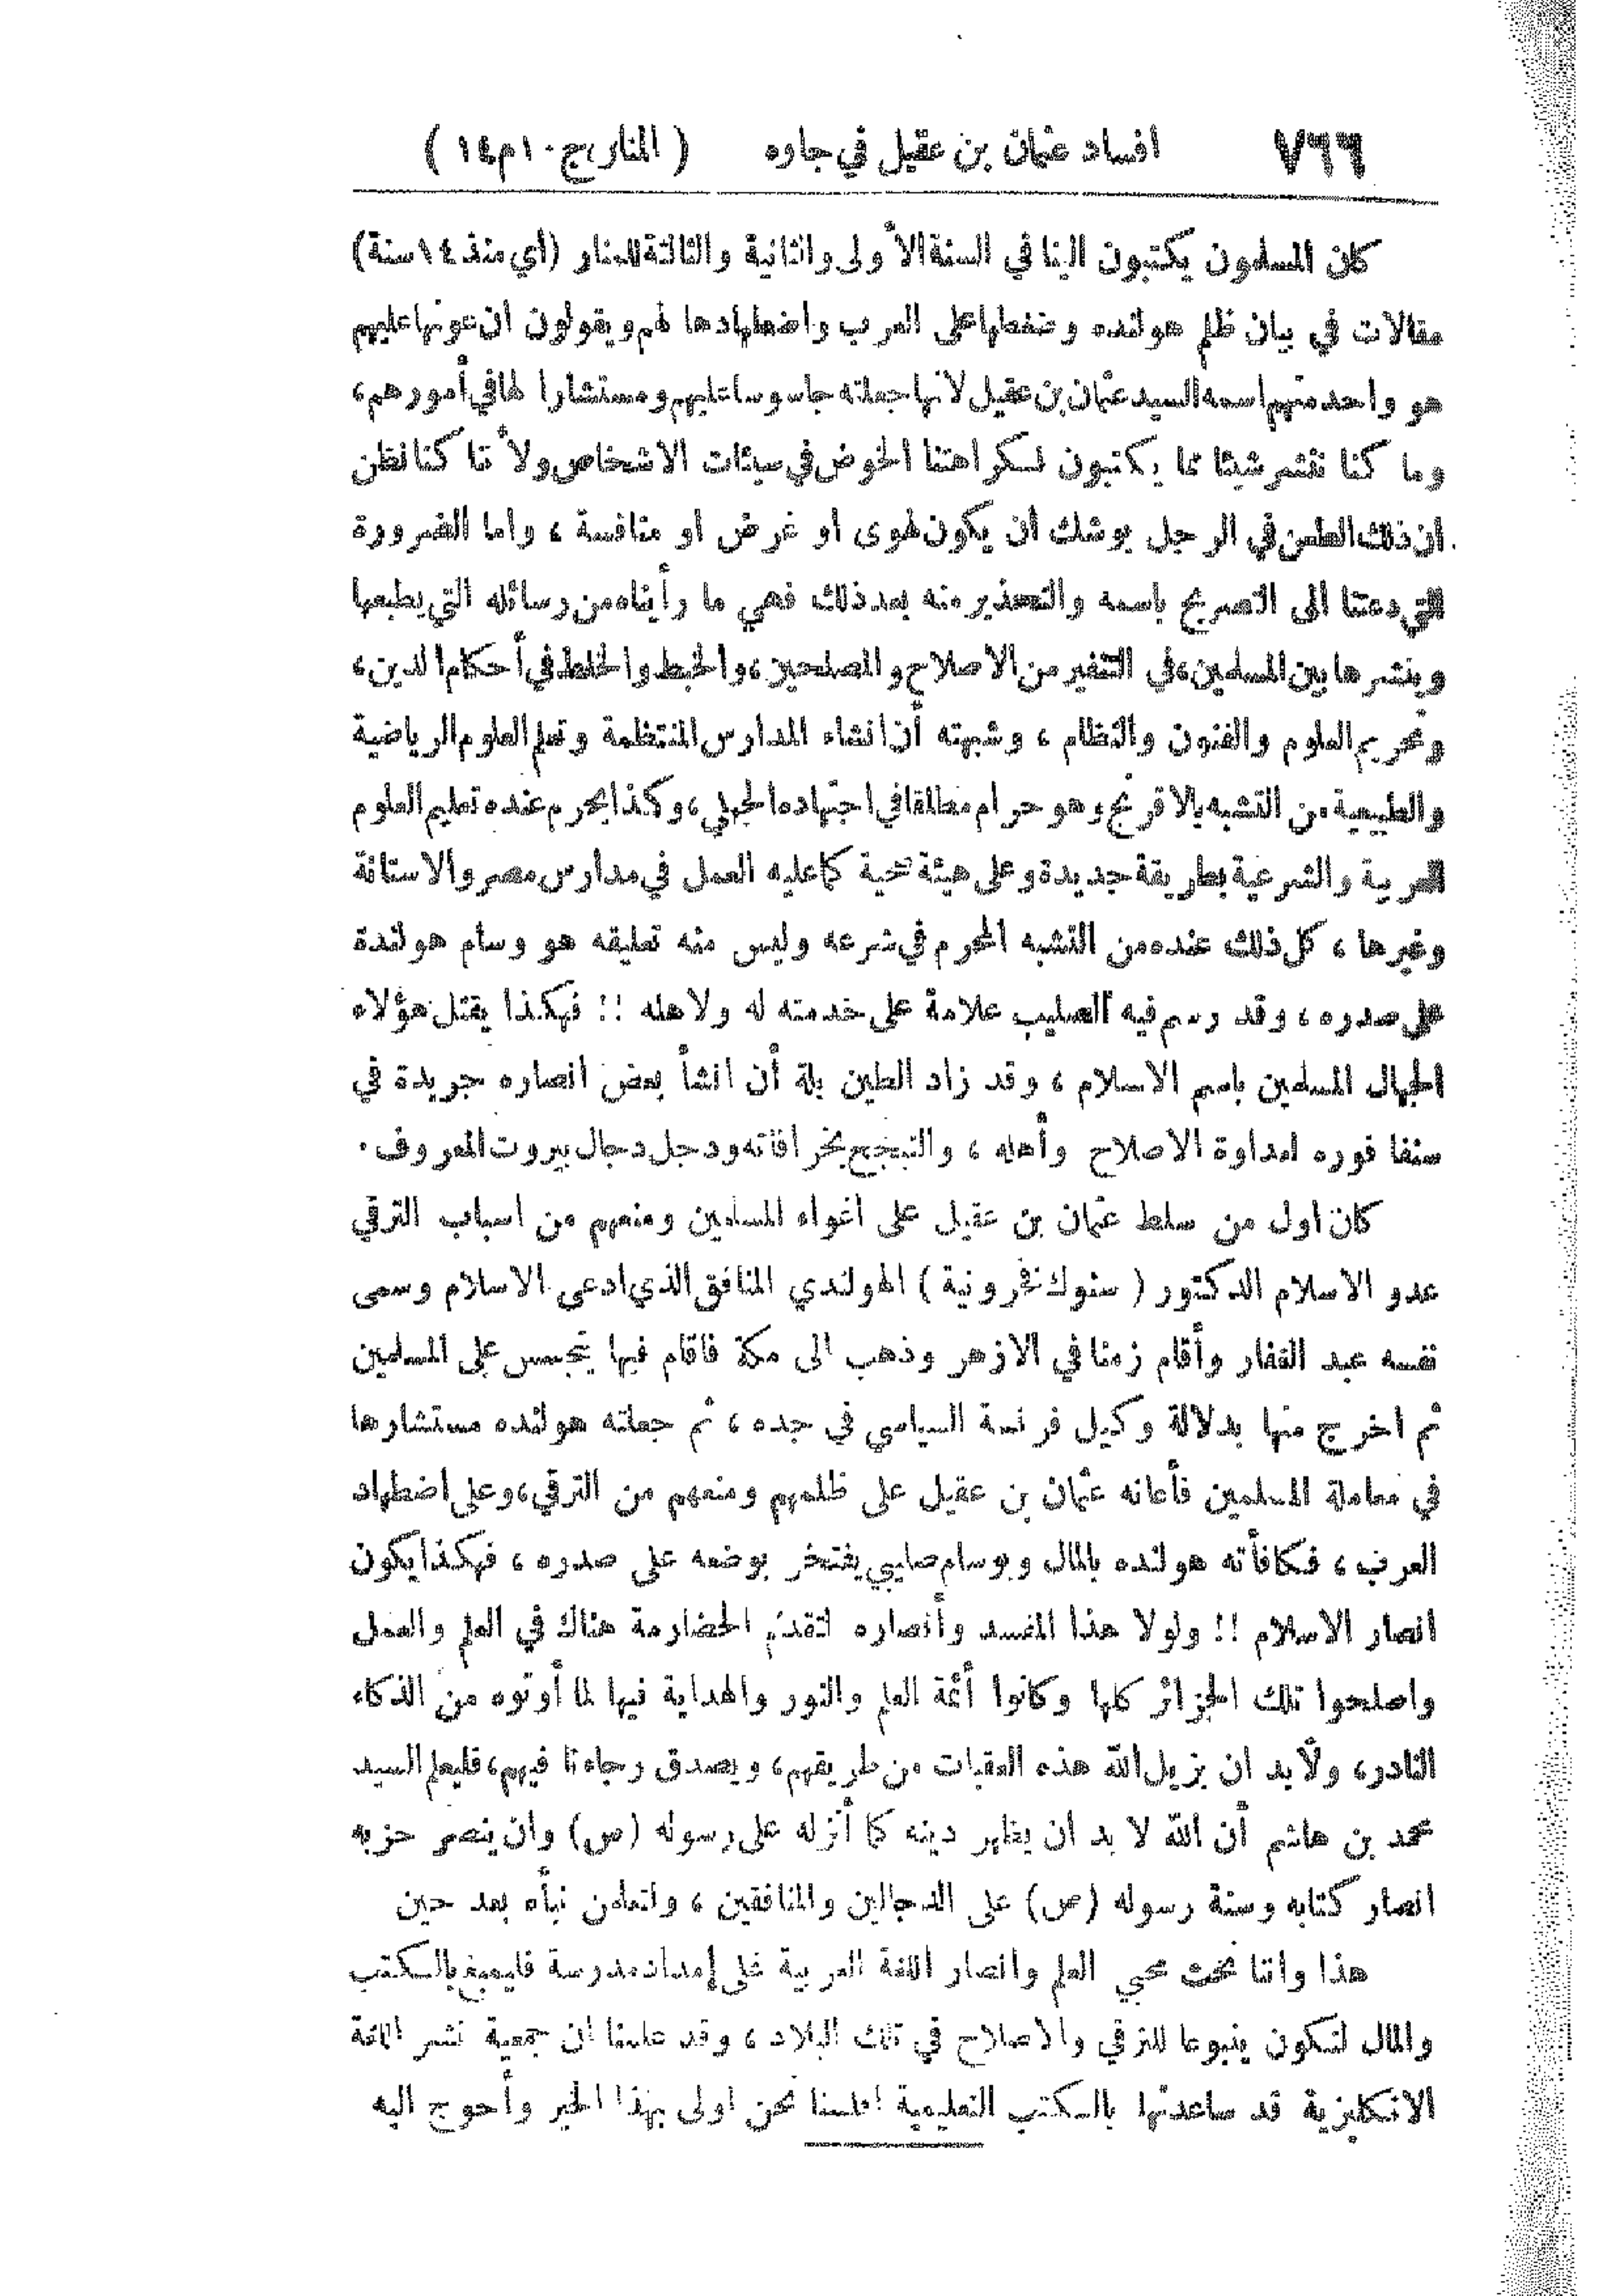 ٧٦٦ افساد عثمان بن عقيل في جاوه ( المنار ج ١٠ م ١٤ )
كان المسلمون يكتبون الينا في السنة الأولى والثانية والثالثة للمنار (أي منذ ١٤ سنة)
مقالات في بيان ظلم هولنده وضغطها على العرب واضطهادها لهم ويقولون ان عونها عليهم
هو واحد منهم اسمه السيد عثمان بن عقيل لانها جعلته جاسوسا عليهم ومستشارا لها في أمورهم،
وما كنا ننشر شيئا مما يكتبون لكراهتنا الخوض في سيئات الاشخاص ولأننا كنا نظن
ان ذلك الطعن في الرجل يوشك ان يكون لهوى او غرض او منافسة ، واما الضرورة
التي دعتنا الى التصريح باسمه والتحذير منه بعد ذلك فهي ما رأيناه من رسائله التي يطبعها
وينشرها بين المسلمين، في التنفير من الاصلاح والمصلحين، والخبط والخلط في أحكام الدين،
وتحريم العلوم والفنون والنظام ، وشبهته أن انشاء المدارس المنتظمة وتعلم العلوم الرياضية
والطبيعية من التشبه بالافرنج وهو حرام مطلقا في اجتهاده الجهلي، وكذا يحرم عنده تعليم العلوم
العربية والشرعية بطريقة جديدة وعلى هيئة صحية كما عليه العمل في مدارس مصر والاستانة
وغيرها ، كل ذلك عنده من التشبه المحرم في شرعه وليس منه تعليقه هو وسام هولندة
على صدره ، وقد رسم فيه الصليب علامة على خدمته له ولاهله !! فهكذا يقتل هؤلاء
الجهال المسلمين باسم الاسلام ، وقد زاد الطين بلة أن انشأ بعض انصاره جريدة في
سنغا فوره لعداوة الاصلاح وأهله ، والتبجح بخرافاته ودجل دجال بيروت المعروف .
كان اول من سلط عثمان بن عقيل على اغواء المسلمين ومنعهم من اسباب الترقي
عدو الاسلام الدكتور ( سنوك نخرونية ) الهولندي المنافق الذي ادعى الاسلام وسمى
نفسه عبد الغفار وأقام زمنا في الازهر وذهب الى مكة فاقام فيها يتجسس على المسلمين
ثم اخرج منها بدلالة وكيل فرنسة السياسي في جده ، ثم جعلته هولنده مستشارها
في معاملة المسلمين فأعانه عثمان بن عقيل على ظلمهم ومنعهم من الترقي، وعلى اضطهاد
العرب ، فكافأته هولنده بالمال وبوسام صليبي يفتخر بوضعه على صدره ، فهكذا يكون
انصار الاسلام !! ولولا هذا المفسد وأنصاره لتقدم الحضارمة هناك في العلم والعمل
واصلحوا تلك الجزائر كلها وكانوا أئمة العلم والنور والهداية فيها لما أوتوه من الذكاء
النادر، ولا بد ان يزيل الله هذه العقبات من طريقهم، ويصدق رجاءنا فيهم، فليعلم السيد
محمد بن هاشم أن الله لا بد ان يظهر دينه كما أنزله على رسوله (ص) وان ينصر حزبه
انصار كتابه وسنة رسوله (ص) على الدجالين والمنافقين ، ولتعلمن نبأه بعد حين
هذا واننا نحث محبي العلم وانصار اللغة العربية على إمداد مدرسة فليمبغ بالكتب
والمال لتكون ينبوعا للترقي والاصلاح في تلك البلاد ، وقد علمنا ان جمعية نشر اللغة
الانكليزية قد ساعدتها بالكتب التعليمية افلسنا نحن اولى بهذا الخير وأحوج اليه